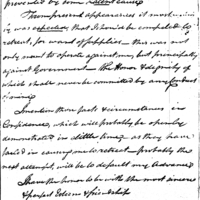 prevented by some
From present appearances it
was expected that I should be compelled to
retreat, for want of supplies - that was not
only want to operate against my
against Government the Honor & dignity of
which shall never be committed by my conduct
I mention these facts & circumstances in
Confidence, which will probably be openly
demonstrated in little time as they have
failed in causing me to retreat - probably the
next attempt, will be to defeat my advance
I have the honor to be with the most sincere
& perfect Esteem & friendship